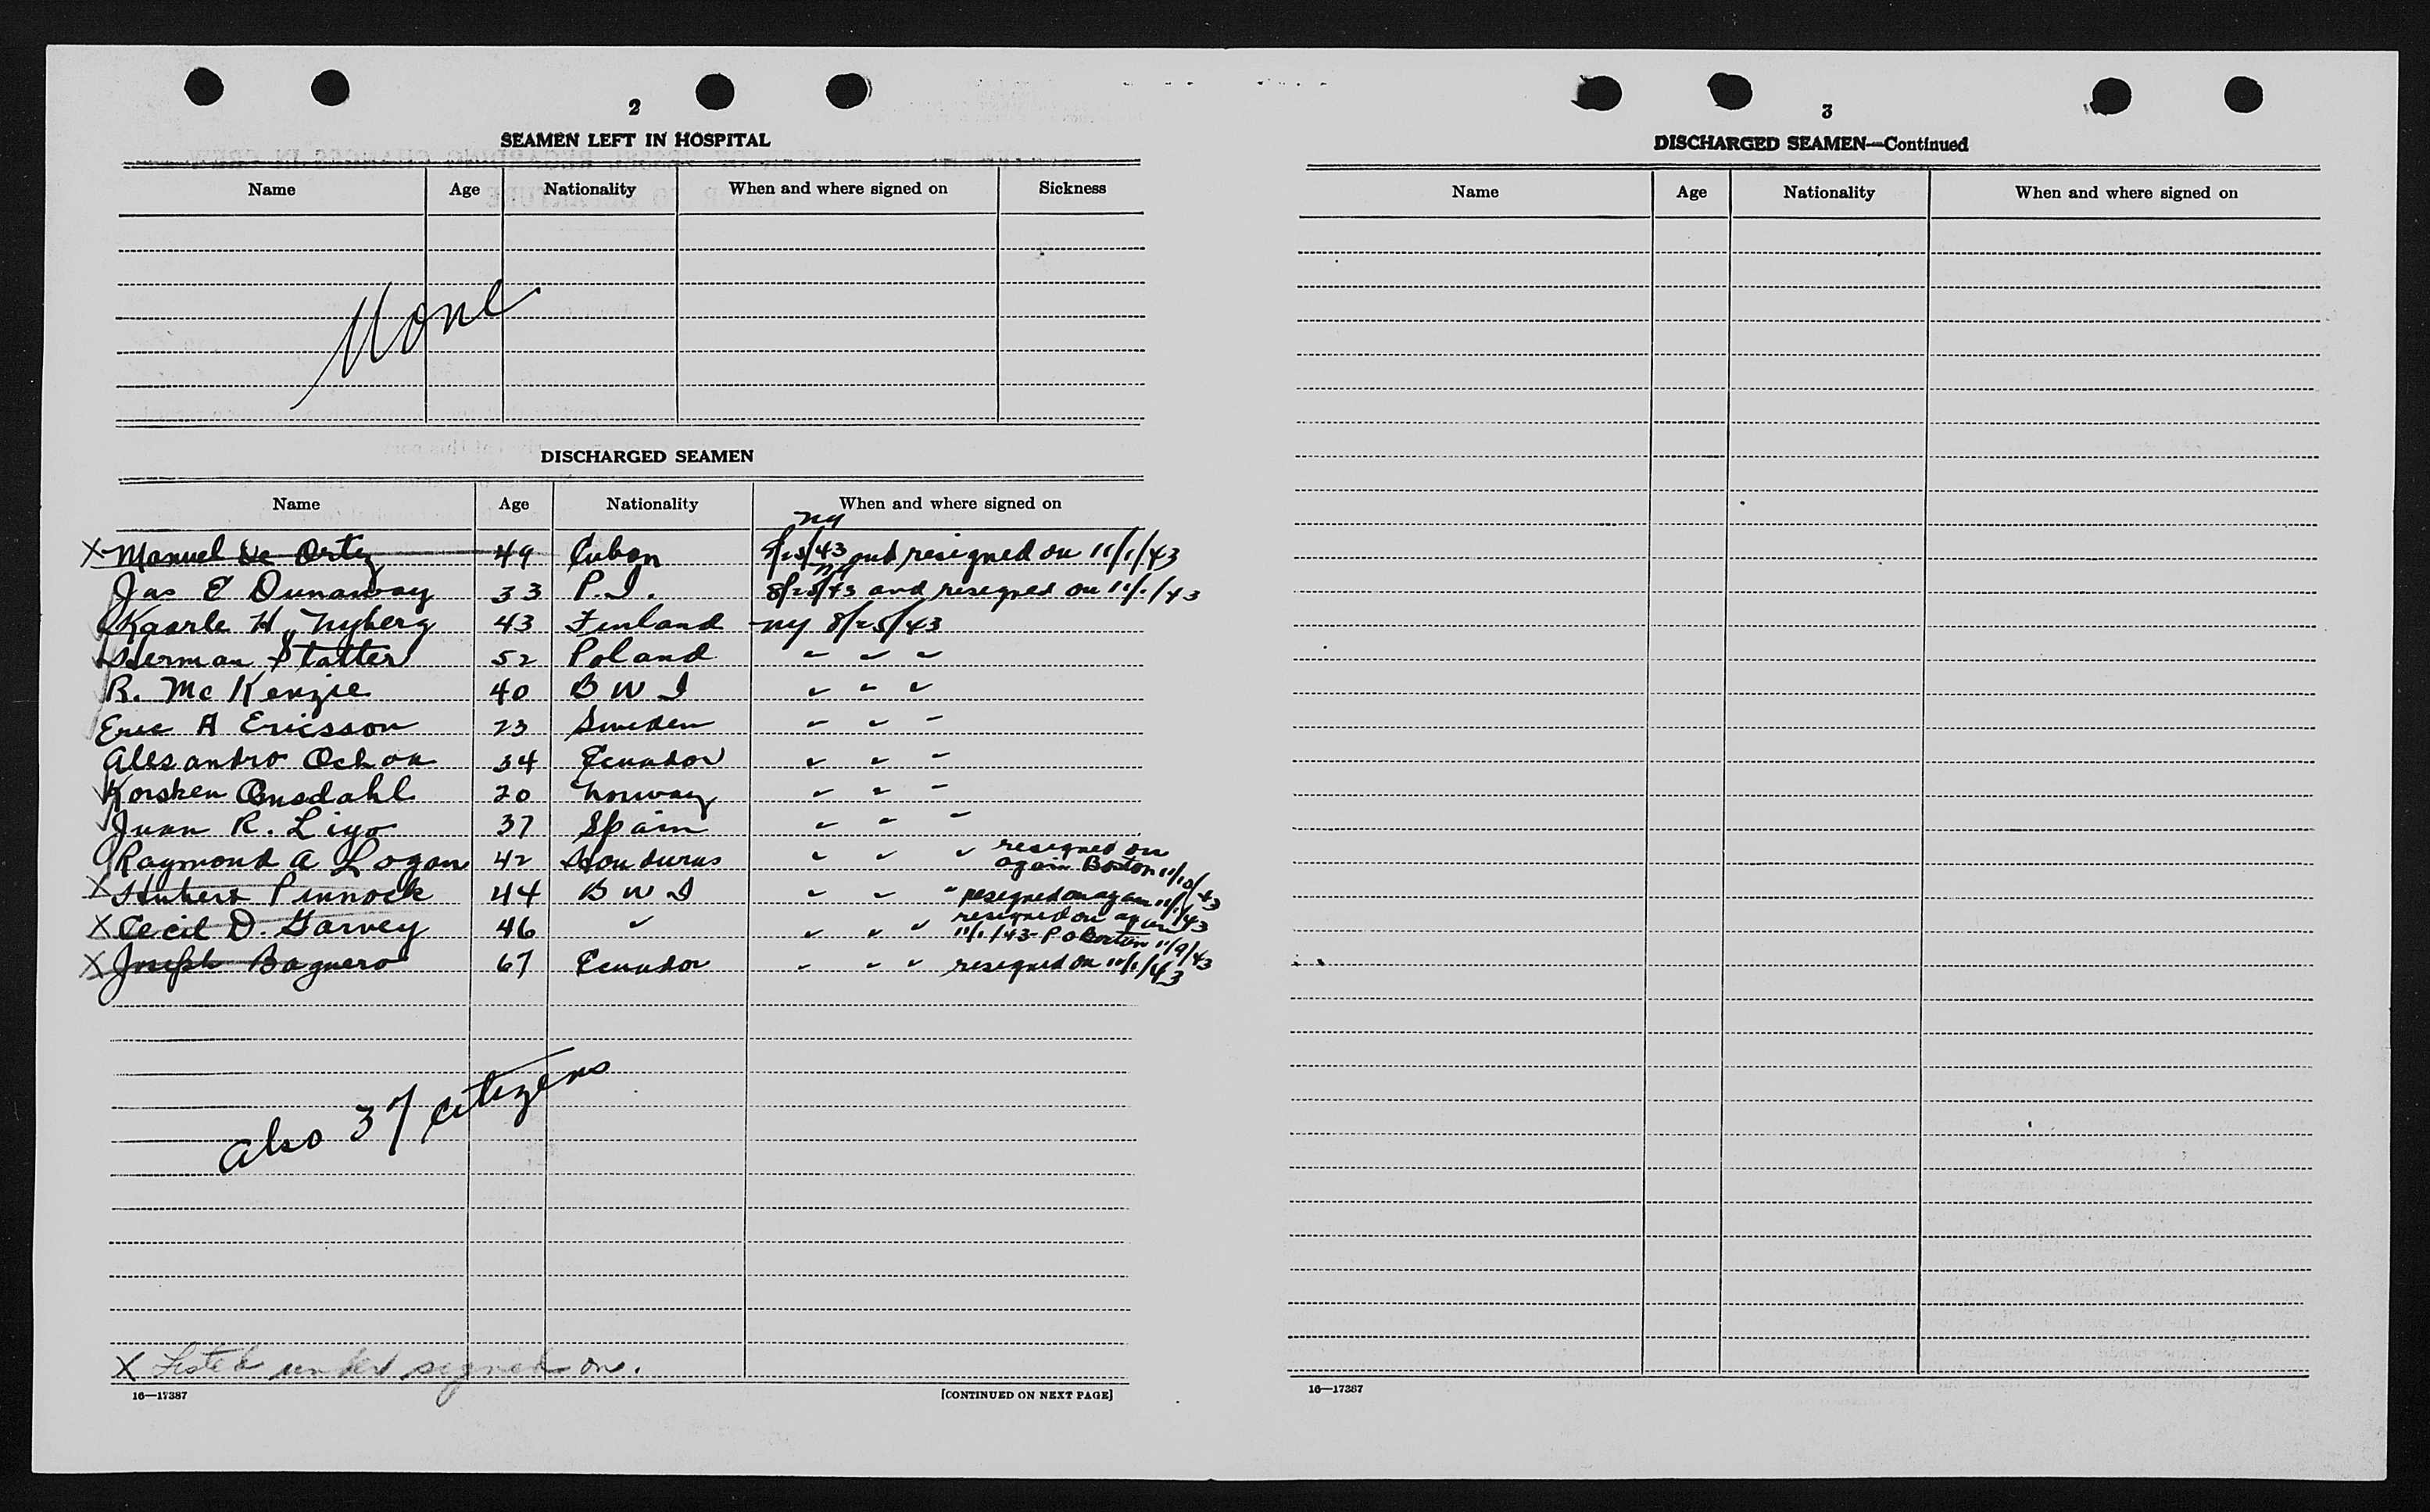 2
SEAMEN LEFT IN HOSPITAL
Name Age Nationality When and where signed on Sickness
None
DISCHARGED SEAMEN
Name Age Nationality When and where signed on
ny
X Manuel De Ortiz 49 Cuban 8/25/43 and resigned on 11/1/43
ny
Jas E Dunaway 33 P.I. 8/25/43 and resigned on 11/1/43
Kaarle H. Nyberg 43 Finland ny 8/25/43
Herman Statter 52 Poland " " "
R. McKenzie 40 B W I " " "
Eric A Ericsson 23 Sweden " " "
Alesandro Ochoa 34 Ecuador " " "
Korsken 20 Norway " " "
Juan R. Liyo 37 Spain " " "
Raymond A Logan 42 Honduras " " " resigned on
again Boston 11/10/43
X Hubert Pinnock 44 B W I " " " resigned on again 11/1/43
X Cecil D. Garvey 46 " " " " resigned on again
11/1/43 Boston 11/9/43
X Joseph Baquero 67 Ecuador " " " resigned on 11/1/43
also 37 citizens
X Listed under signed on.
16—17387 [CONTINUED ON NEXT PAGE]
3
DISCHARGED SEAMEN—Continued
Name Age Nationality When and where signed on
16—17387